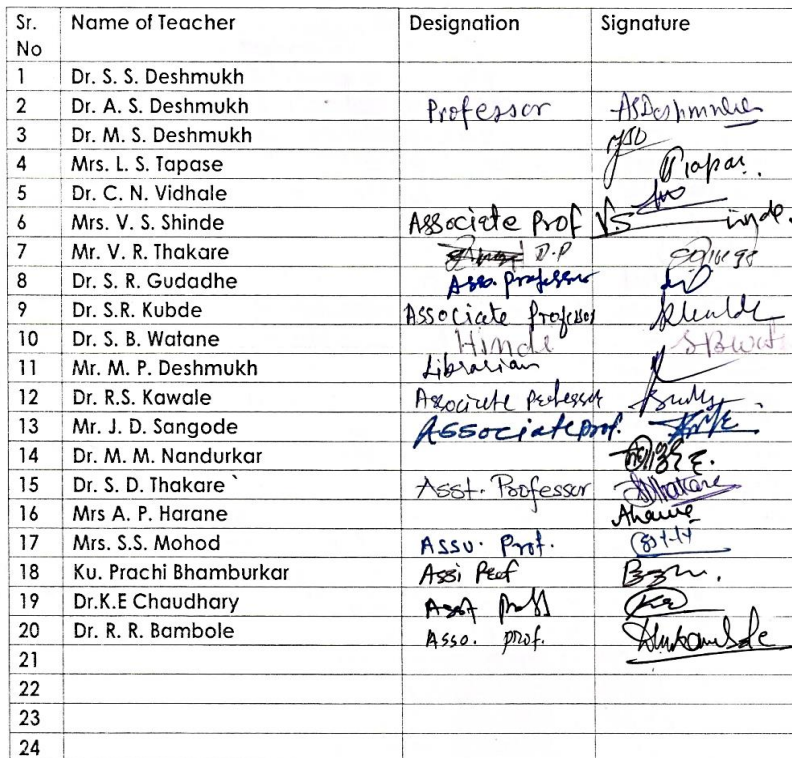 Sr. No Name of Teacher Designation Signature
1 Dr. S. S. Deshmukh
2 Dr. A. S. Deshmukh Professor ASDeshmukh
3 Dr. M. S. Deshmukh
4 Mrs. L. S. Tapase
5 Dr. C. N. Vidhale
6 Mrs. V. S. Shinde Associate Prof
7 Mr. V. R. Thakare D.P
8 Dr. S. R. Gudadhe Asso. professor
9 Dr. S.R. Kubde Associate Professor
10 Dr. S. B. Watane Hindi
11 Mr. M. P. Deshmukh Librarian
12 Dr. R.S. Kawale Associate Professor
13 Mr. J. D. Sangode Associate prof.
14 Dr. M. M. Nandurkar
15 Dr. S. D. Thakare Asst. Professor SDThakare
16 Mrs A. P. Harane
17 Mrs. S.S. Mohod Asso. Prof.
18 Ku. Prachi Bhamburkar Assi Prof
19 Dr.K.E Chaudhary Asst
20 Dr. R. R. Bambole Asso. prof.
21
22
23
24